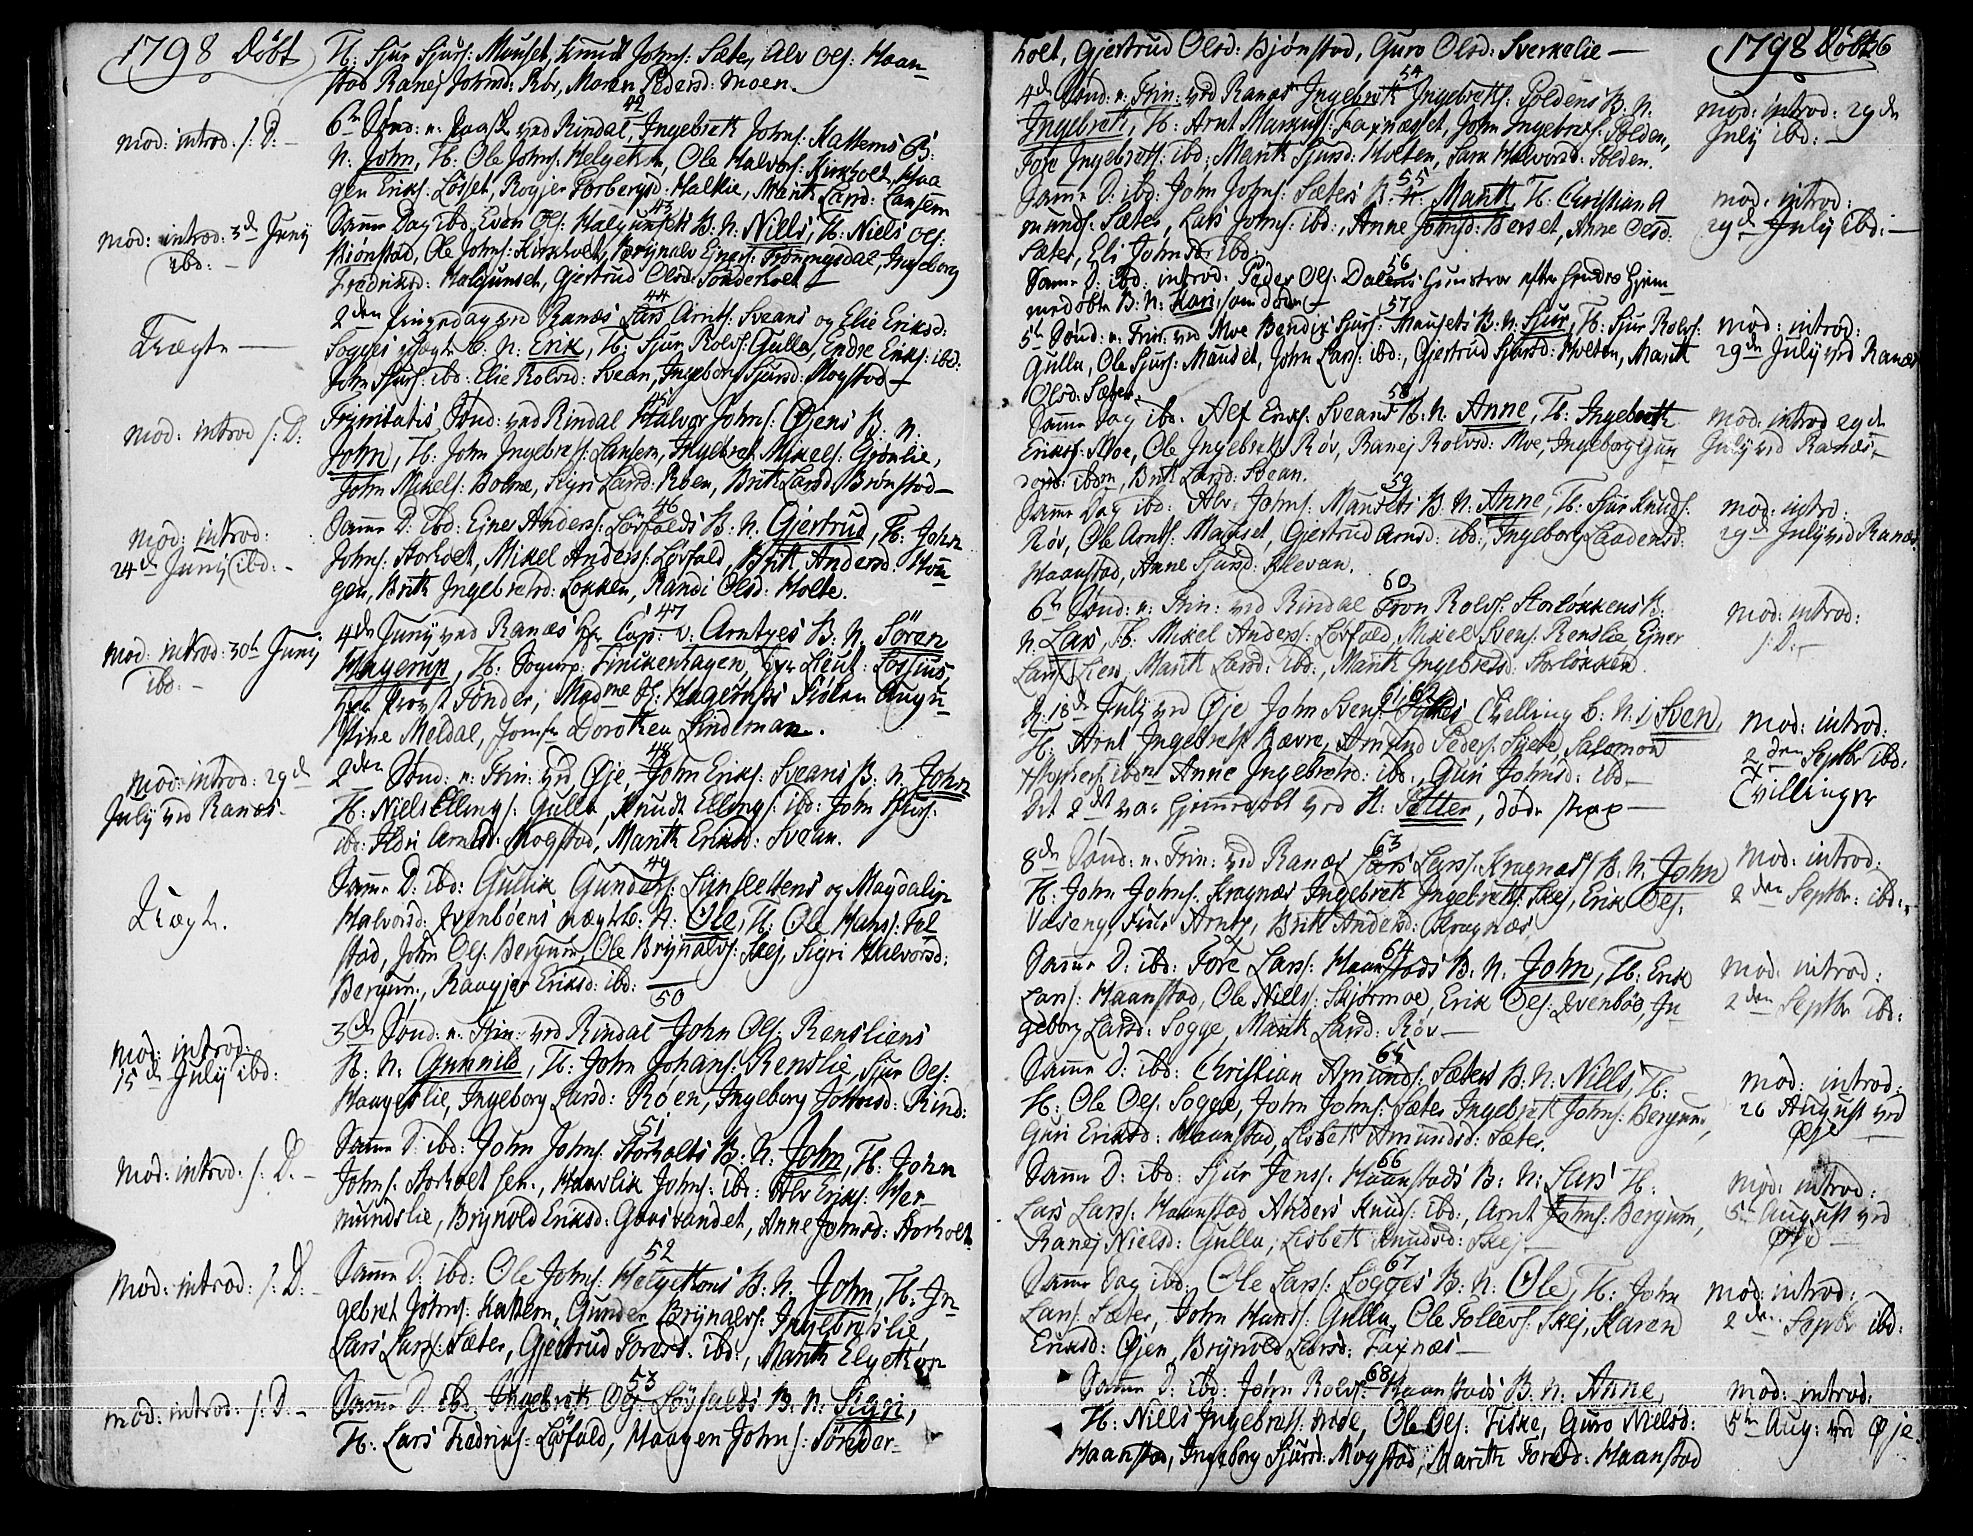 1798 Döbt
T: Sjur Sjurs: Mauset, Knudt Johns: Sæter, Alv Ols: Haan-
stad Ranej Johnsd: Röv, Maren Pedersd: Moen.
42
mod: introd: s: D: -
6te Sönd: n: Paask ved Rindal, Ingebrekt Johns: Kattems B:
N: John, T: Ole Johns: Helgeton, Ole Halvors: Kirkholt, Haa
gen Eriks: Löset, Rogjer Torbergsd: Halklie, Marit Larsd: Lansem
43
mod: introd: 3de Junij
ibd: -
Samme Dag ibd: Even Ols: Halgunsets B: N: Niels, T: Niels Ols:
Bjönstad, Ole Johns: Kirkholt, Brynald Ejners: Tröningsdal, Ingeborg
Fredriksd: Halgunset, Gjertrud Olsd: Sönderholt
44
Uægte -
2den Pinsedag ved Ranæs Lars Arnts: Sveans og Elie Eriksd:
Sogges uægte B: N: Erik, T: Sjur Rolvs: Gulla, Endre Eriks: ibd:
John Sjurs: ibd: Elie Rolvsd: Svean, Ingeborg Sjursd: Mogstad -
45
mod: introd s: D:
Trinitatis Sönd: ved Rindal Halvor Johns: Öjens B: N:
John, T: John Ingebrets: Lansem, Ingebret Mikels: Grönlie,
John Mikels: Bolme, Sigri Larsd: Röen, Brit Larsd: Brönstad -
46
mod: introd:
24de Junij ibd: -
Samme D: ibd: Ejner Anders: Lövfalds B: N: Gjertrud, T: John
Johns: Storholt, Mikel Anders: Lövfald, Brit Andersd:
gen, Brit Ingebretsd: Løkken, Randi Olsd: Holte.
47
mod: introd: 30te Junij
ibd: -
4de Junij ved Ranæs Hr Cap: v: Arntzes B: N: Sören
Hagerup, T: Linckenhagen, Hr Lieut:
Hr Provst Tönder, Madme Sl: Hagerups Frölen Augu-
stine Meldal, Jomfr Dorothea Lindeman.
48
mod: introd: 29de
July ved Ranæs.
2den Sönd: n: Trin: ved Öje, John Eriks: Sveans B: N: John
T: Niels Ellings: Gulla, Knudt Ellings: ibd: John Sjurs:
ibd: Arntsd: Mogstad, Marit Eriksd: Svean.
49
Uægte.
Samme D: ibd: Gullik Gunders: Sunslettens og Magdalin
Halvorsd: Evenböens uægte B: N: Ole, T: Ole Hans: Fal
stad, John Ols: Bergum, Ole Brynalvs: Skej, Sigri Halvorsd:
Bergum, Raagjer Eriksd: ibd:
50
mod: introd:
15de July ibd:
3de Sönd: n: Trin: ved Rindal John Ols: Rensliens
B: N: Gunnild, T: John Johans: Renslie, Sjur Ols:
Haugerlie, Ingeborg Larsd: Röen, Ingeborg Johnsd: Rind:
51
mod: introd: s: D. -
Samme D: ibd: John Johns: Storholts B: N: John, T: John
Johns: Storholt sen:, Haarlik Johns: ibd: Alv Eriks: Her-
mundslie, Brynold Eriksd: Gaasvandet, Anne Johnsd: Storholt
52
mod: introd: s: D. -
Samme D: ibd: Ole Johns: Helgetons B: N: John, T: In-
gebret Johns: Kattem, Gunder Brynalvs: Ingebretslie,
Lars Lars: Sæter, Gjertrud Toresd: ibd:, Marit Elgeton
53
mod: introd: s: D. -
Samme D: ibd: Ingebrekt Ols: Lövfalds B: N: Sigri,
T: Lars Fredriks: Löfald, Haagen Johns: Sönder-
holt, Gjertrud Olsd: Bjönstad, Guro Olsd: Sverkelie -
1798 Döbt 6
54
4de Sönd: n: Trin: ved Ranæs Ingebrekt Ingebrekts: Toldens B: N:
Ingebrekt, T: Arnt Markus: Faxnæsset, John Ingebrets: Tolden,
Tore Ingebrets: ibd: Marit Sjursd: Holten, Sara Halvorsd: Tolden.
mod: introd: 29de
July ibd: -
55
Samme D: ibd: John Johns: Sæters B: N: Marit, T: Christian A
munds: Sæter, Lars Johns: ibd:, Anne Johnsd: Berset, Anne Olsd:
Sæter, Eli Johnsdr ibd:
mod: introd:
29de July ibd: -
56
Samme D: ibd: introd: Peder Ols: Dalens Hunstroe efter hendes Hjem-
med öbte B: N: Kari, som döde -
57
5te Sönd: n: Trin: ved Moe Bendix Sjurs: Mausets B: N: Sjur, T: Sjur Rolvs:
Gulla, Ole Sjurs: Mauset, John Lars: ibd:, Gjertrud Sjursd: Holten, Marit
Olsd: Sæter.
mod: introd:
29de July ved Ranæs
58
Samme Dag ibd: Alf Eriks: Sveans B: N: Anne, T: Ingebrekt
Eriks: Moe, Ole Ingebrekts Röv, Ranej Rolvsd: Moe, Ingeborg Gun-
dersd: ibdm, Brit Larsd: Svean.
mod: introd 29de
July ved Ranæs, -
59
Samme Dag ibd: Alv Johns: Mausets B: N: Anne, T: Sjur Knuds:
Röv, Ole Arnts: Mauset, Gjertrud Arnsd: ibd:, Ingeborg Laadensd:
Haanstad, Anne Sjursd: Klevan.
mod: introd:
29de July ved Ranæs.
60
6te Sönd: n: Trin: ved Rindal Tron Rolvs: Storlökkens B:
N: Lars, T: Mikel Anders: Lövfald, Mikel Svens: Renslie Ejner
Lars: Lien, Marit Larsd: ibd:, Marit Ingebretsd: Storlökken
mod: introd:
s: D: -
61, 62
D: 18de July ved Öje John Svens: Tvilling B: N: 1) Sven,
T: Arnt Ingebrets Bævre, Amund Peders: Skete, Salomon
ibdm Anne Ingebretsd: ibd:, Guri Johnsd: ibd -
Det 2det var hjemmedöbt ved N: Petter, döde strax -
mod: introd:
2den Septbr ibd:
Tvillinger
63
8de Sönd: n: Trin: ved Ranæs Lars Lars: Kragnæs's B: N: John
T: John Johns: Kragnæs Ingebrekt Ingebrekts: Skej, Erik Ols:
Vaseng, Arntz, Brit Andersd: Kragnæs
mod: introd:
2den Septbr: ibd: -
64
Samme D: ibd: Tore Lars: Haanstads B: N: John, T: Erik
Lars: Haanstad, Ole Niels: Skjermoe, Erik Ols: Evenböe, In-
geborg Larsd: Sogge, Marit Larsd: Röv -
mod: introd:
2den Septbr ibd:
65
Samme D: ibd: Christian Amunds: Sæters B: N: Niels, T:
T: Ole Ols: Sogge, John Johns: Sæter Ingebrekt Johns: Bergum,
Guri Eriksd: Haanstad, Lisbet Amundsd: Sæter.
mod: introd:
26 August ved
Öje -
66
Samme D: ibd: Sjur Jens: Haanstads B: N: Lars T:
Lars Lars: Haanstad Anders Knuds: ibd:, Arnt Johns: Bergum,
Ranej Nielsd: Gulla, Lisbet Knudsd: Skej -
mod: introd:
5te August ved
Öje -
67
Samme Dag ibd: Ole Lars: Sogges B: N: Ole, T: John
Lars: Sæter, John Hans: Gulla, Ole Tollevs: Skej, Karen
Eriksd: Öjen, Brynold Larsd: Faxnæs -
mod: introd:
2den Septbr ibd:
68
Samme D: ibd: John Rolvs: Haanstads B: N: Anne,
T: Niels Ingebrets: Moe, Ole Ols: Fiske, Guro Nielsd:
Haanstad, Ingeborg Sjursd: Mogstad, Marit Toresd: Haanstad
mod: introd:
5te Aug: ved Öje.